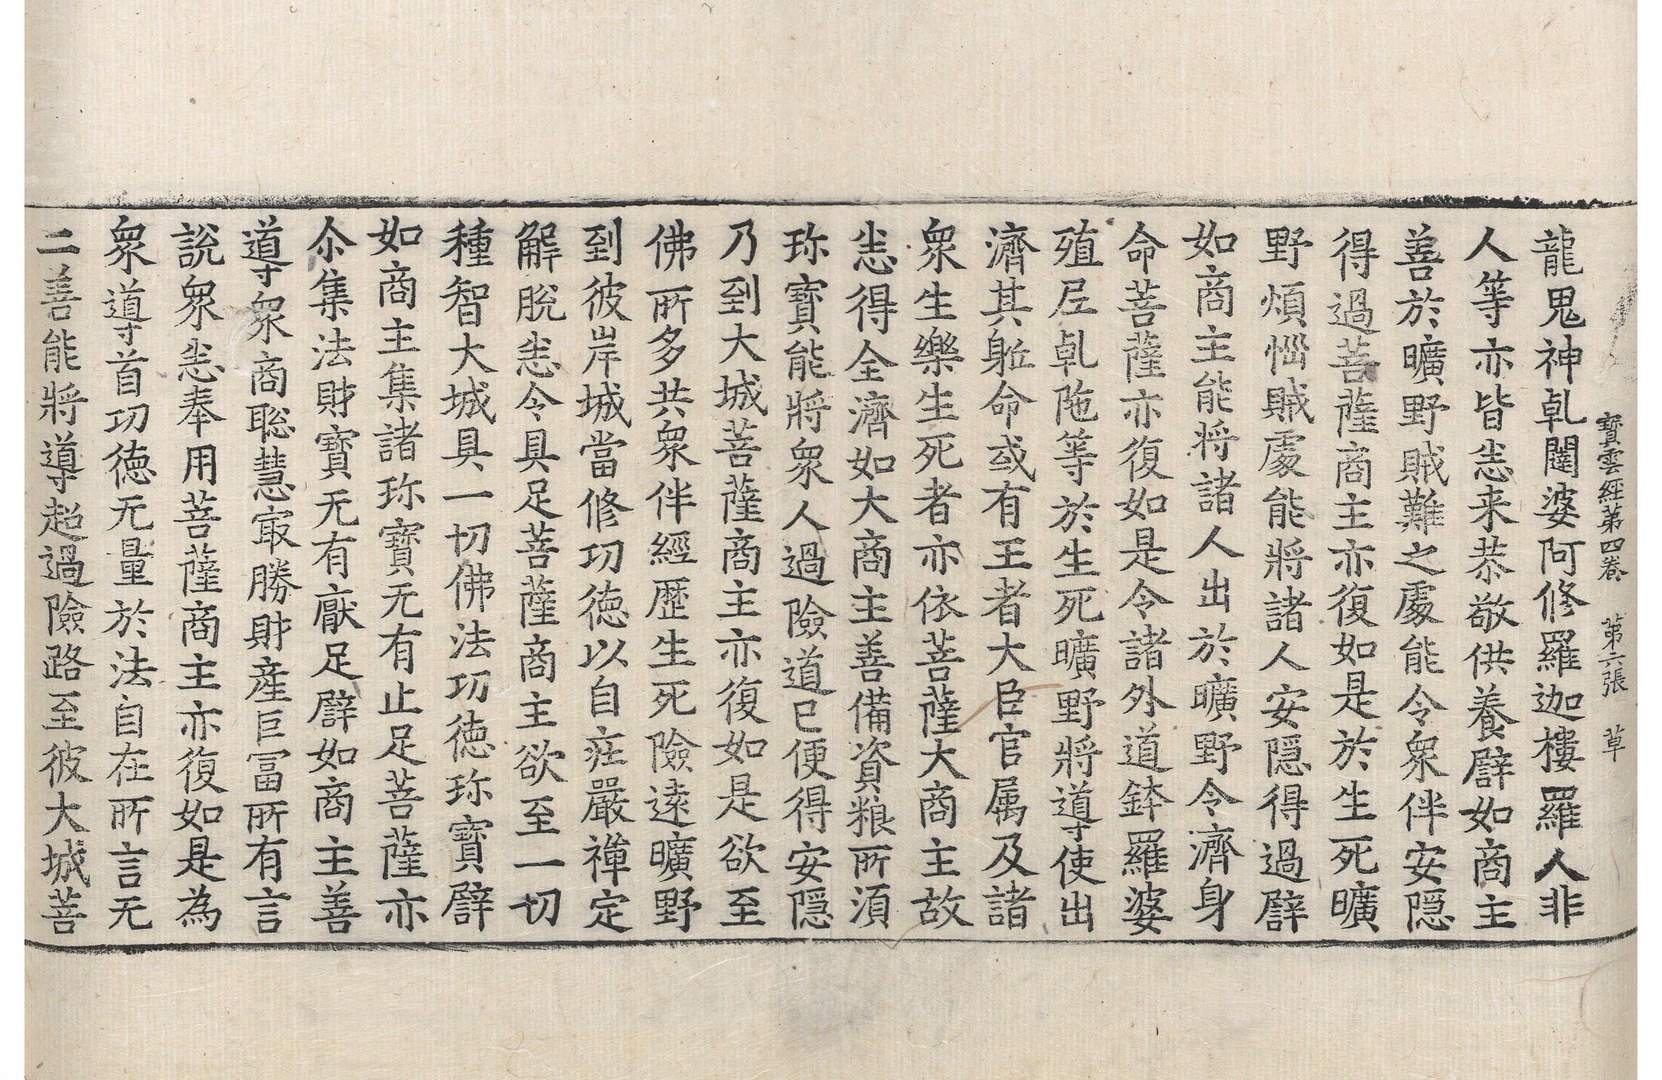 寶雲經第四卷　第六張　草
龍鬼神乹闥婆阿修羅迦樓羅人非
人等亦皆恙来恭敬供養譬如商主
善於曠野賊難之處能令衆伴安隱
得過菩薩商主亦復如是於生死曠
野煩惱賊處能將諸人安隱得過譬
如商主能将諸人出於曠野令濟身
命菩薩亦復如是令諸外道鉢羅婆
殖𡰱乹陁等於生死曠野將導使出
濟其軀命或有王者大臣官属及諸
衆生樂生死者亦依菩薩大商主故
恙得全濟如大商主善備資粮所湏
珎寶能將衆人過險道已便得安隱
乃到大城菩薩商主亦復如是欲至
佛所多共衆伴經歷生死險遠曠野
到彼岸城當修功徳以自庄嚴禅定
解脫恙令具足菩薩商主欲至一切
種智大城具一切佛法功徳珎寶譬
如商主集諸珎寶无有止足菩薩亦
尒集法財寶无有厭足譬如商主善
導衆商聡慧㝡勝財産巨冨所有言
說衆恙奉用菩薩商主亦復如是為
衆導首功徳无量於法自在所言无
二善能將導超過險路至彼大城菩